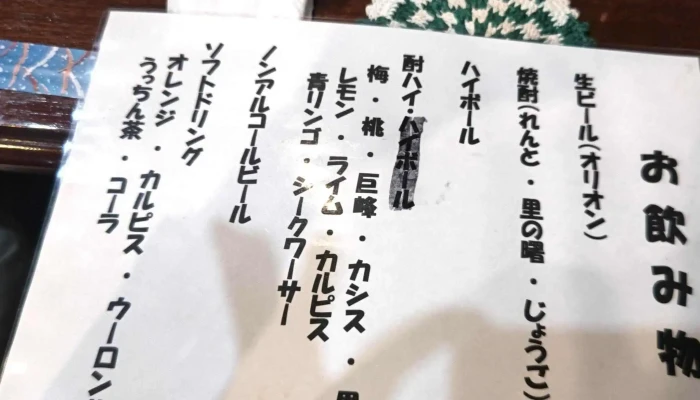 お飲み物
生ビール(オリオン)
焼酎(れんと・里の曙・じょうご)
ハイボール
酎ハイ・ハイボール
梅・桃・巨峰・カシス・
レモン・ライム・カルピス
青リンゴ・シークワーサー
ノンアルコールビール
ソフトドリンク
オレンジ・カルピス・ウーロン
うっちん茶・コーラ